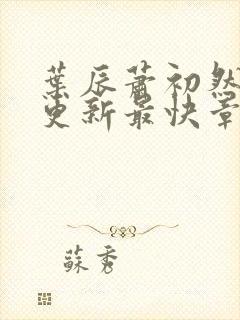 葉辰蕭初然
更新最快章
蘇秀